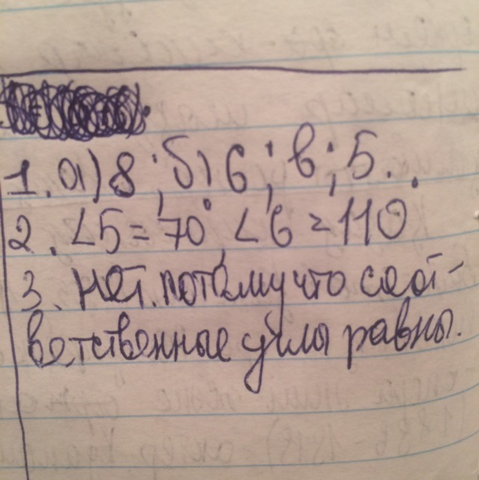 1. а) 8; б) 6; в; 5.
2. ∠5 = 70°, ∠6 = 110°
3. Нет. потому что соот-
ветственные углы равны.